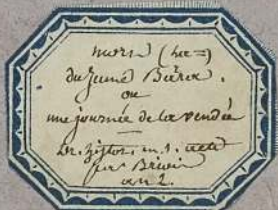 mort (hé=)
du jeune Barra.
ou
une journée de la vendée
Dr. histor. en 1. acte
par Briois
an 2.